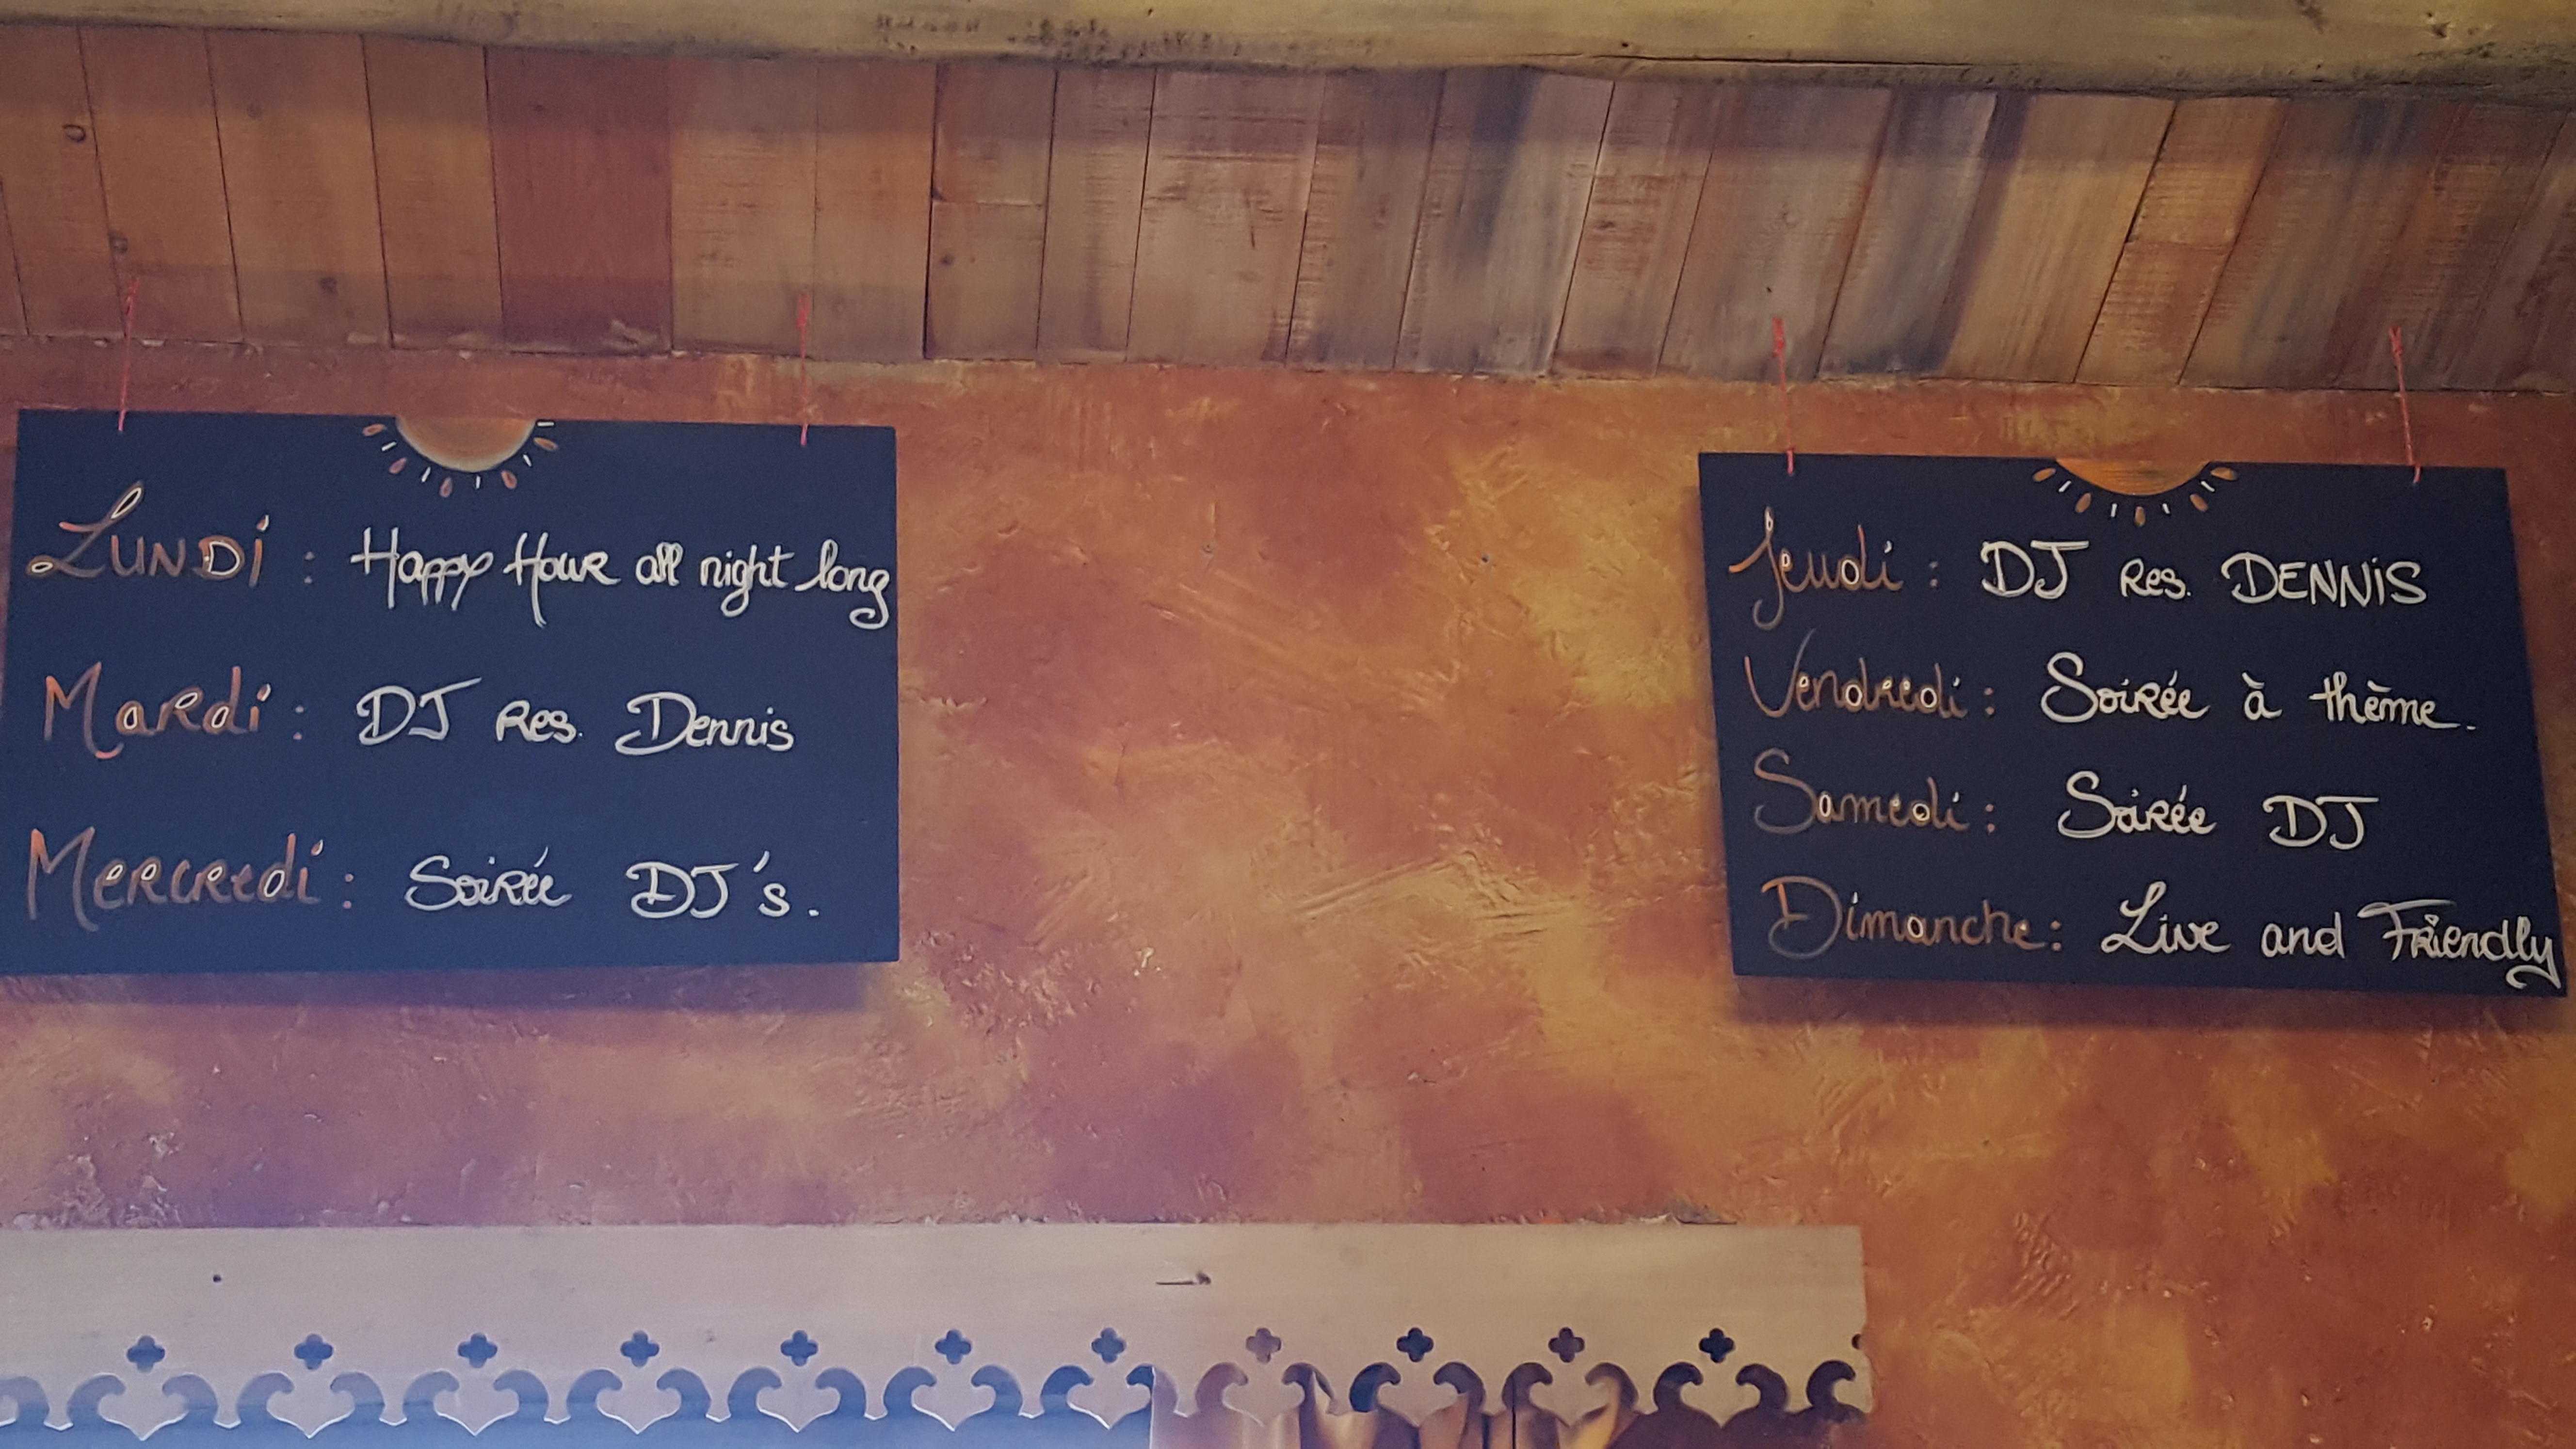 LUNDi : Happy Hour all night long
Mardi : DJ Res. Dennis
Mercredi : Soirée DJ's.
Jeudi : DJ Res. DENNiS
Vendredi : Soirée à thème.
Samedi : Soirée DJ
Dimanche : Live and Friendly